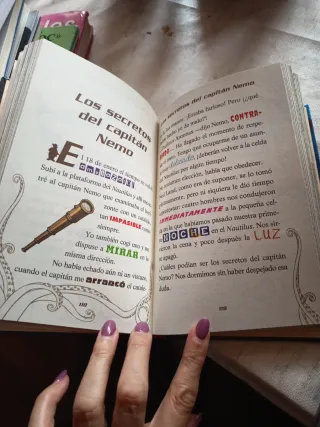 Los secretos
del capitán
Nemo
El 18 de enero el tiempo se
Subí a la plataforma del Nautilus y allí
tré al capitán Nemo que examinaba el
zonte con un
tan IMPASIBLE como
siempre.
Yo también cogí uno y me
dispuse a MIRAR en la
misma dirección.
No había echado aún ni un vistazo,
cuando el capitán me arrancó el catale
Los secretos del capitán Nemo
¡Estaba furioso! Pero ¿qué
de malo?!
—dijo Nemo, CONTRA-
Ha llegado el momento de respe-
Tengo que ocuparme de un asun-
deberán volver a la celda
por algún tiempo!
había que obedecer.
como era de suponer, se lo tomó
pero ni siquiera le dio tiempo
nos condujeron
INMEDIATAMENTE a la pequeña cel-
en la que habíamos pasado nuestra prime-
NOCHE en el Nautilus. Nos sir-
la cena y poco después la LUZ
se apagó.
¿Cuáles podían ser los secretos del capitán
Nemo? Nos dormimos sin haber despejado esa
duda.